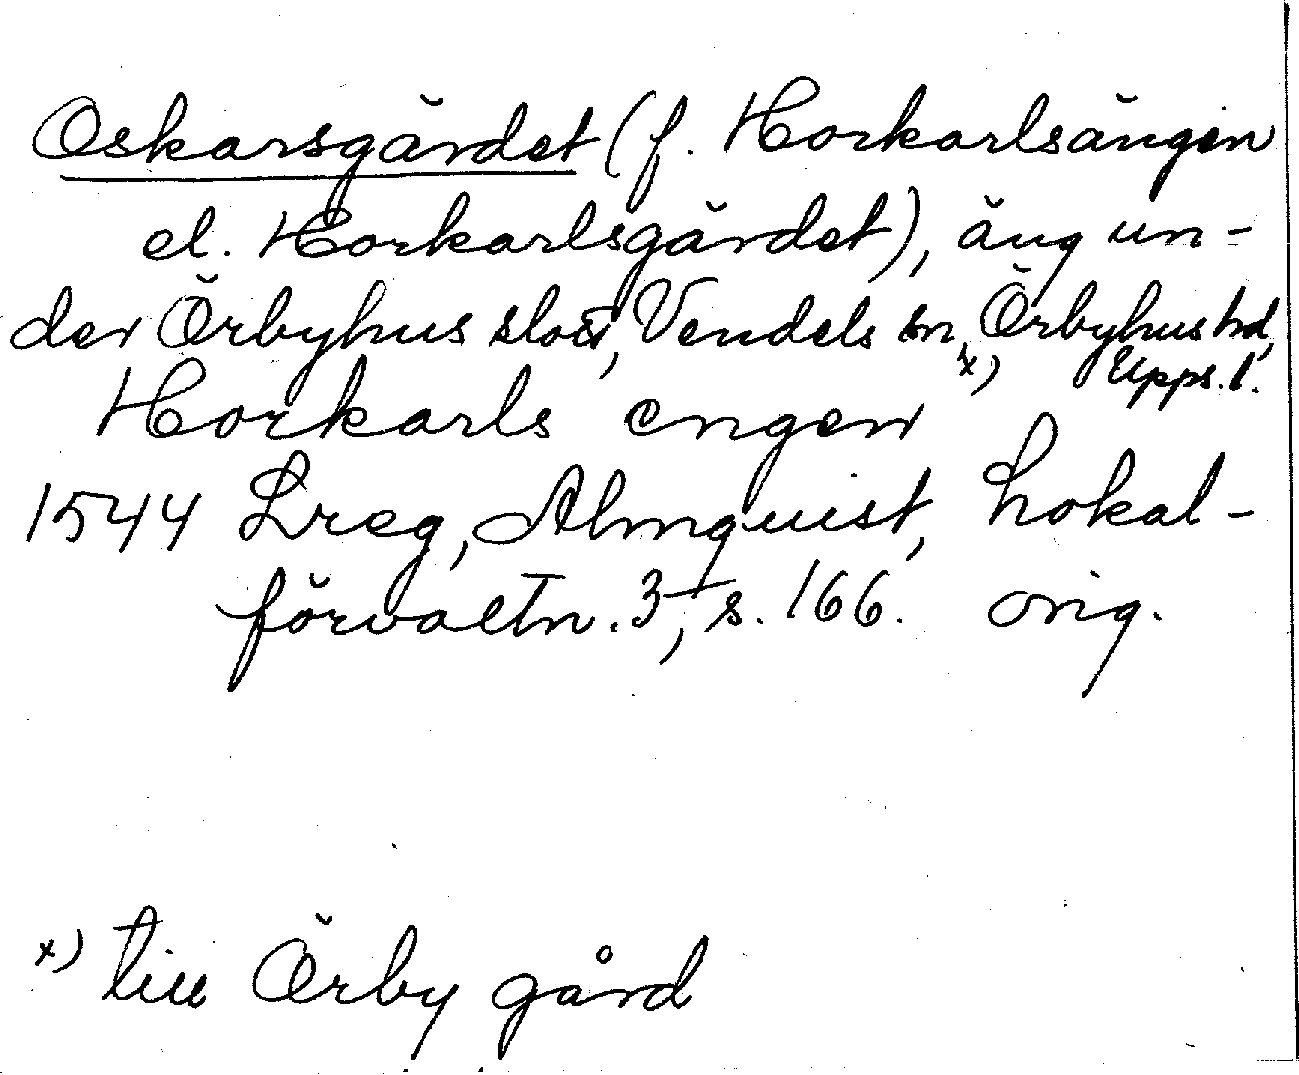 Oskarsgärdet (f. Horkarlsängen
el. Horkarlsgärdet), äng un-
der Örbyhus slott, Vendels sn, Örbyhus hd,
Upps. l.
Horkarls engen x)
1544 Lreg, Almquist, Lokal-
förvaltn. 3, s. 166. orig.
x) till Örby gård